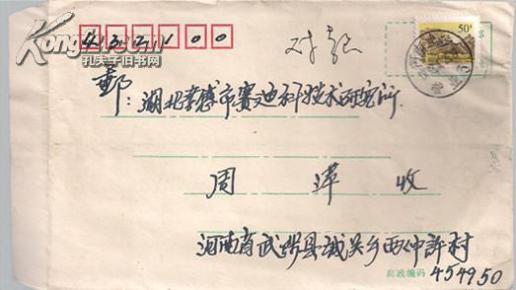 432100
挂号
邮：湖北孝感市赛迪科技术研究所
周萍收
河南省武陟县城关乡西仲許村
邮政编码 454950
50分
孔夫子旧书网